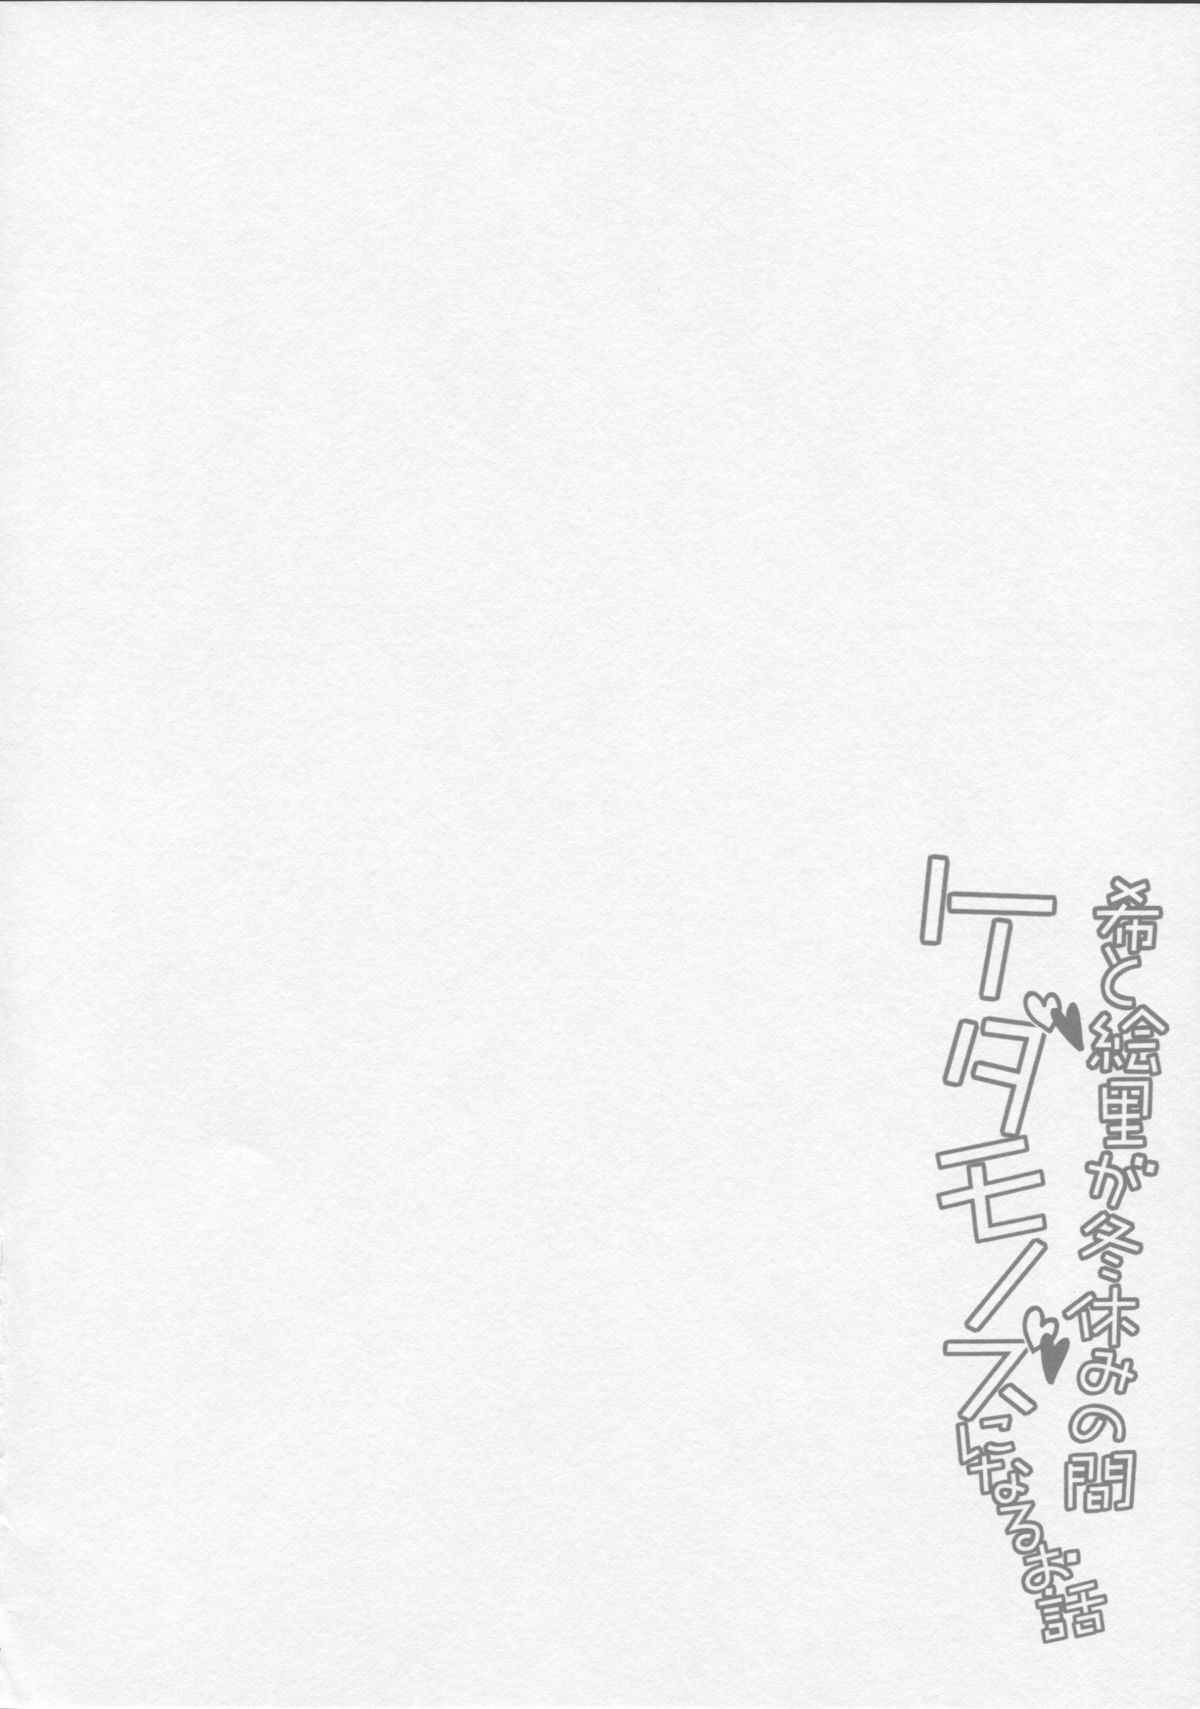 希と絵里が冬休みの間
ケダモノズになるお話